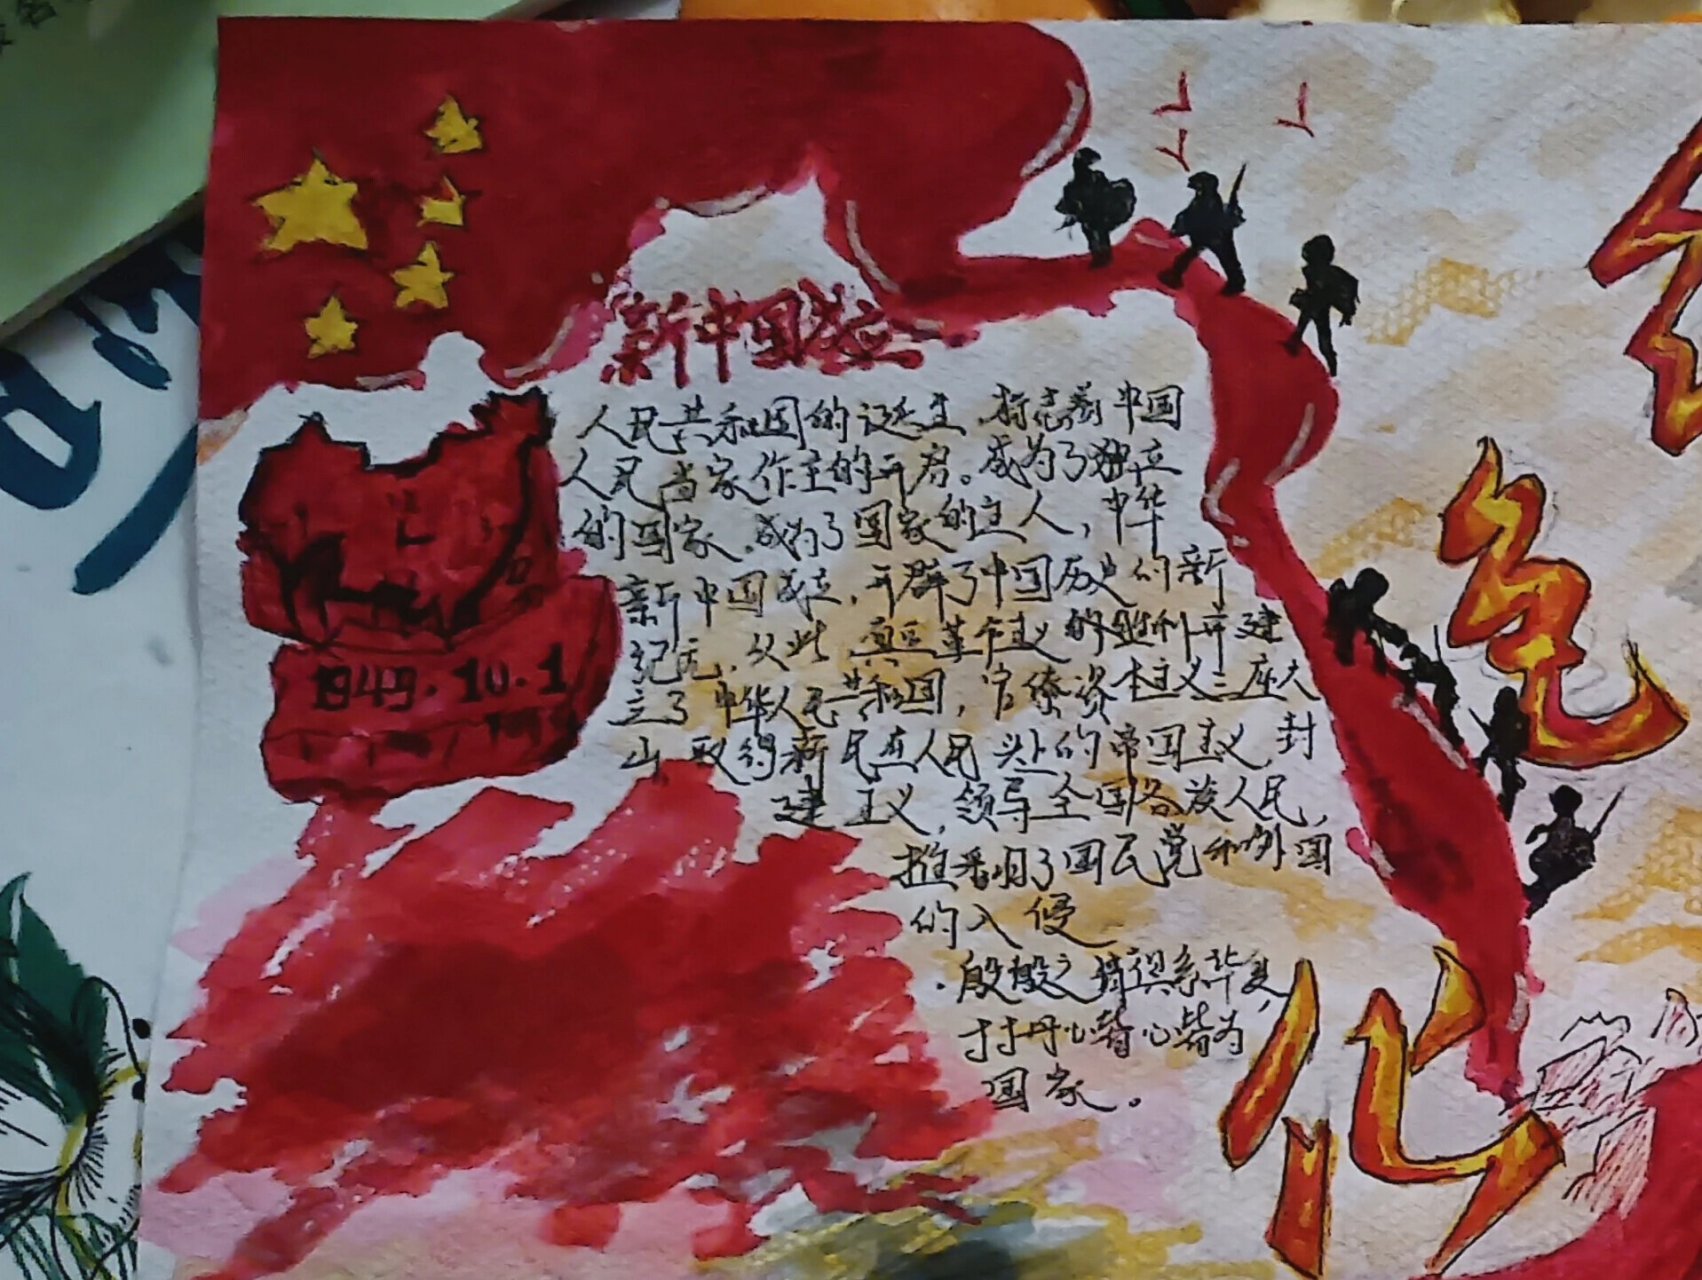 新中国成立
人民共和国的诞生,标志着中国
人民当家作主的开启。成为了独立
的国家,成为了国家的主人,中华
新中国成立,开辟了中国历史的新
纪元,从此,真正革命主义的胜利并建
立了中华人民共和国,官僚资本主义三座大
山,取得新民在人民头上的帝国主义,封
建主义,领导全国各族人民,
推翻了国民党和外国
的入侵
殷殷之情俱系华夏,
寸寸丹心皆心皆为
国家。
1949.10.1
红
色
化